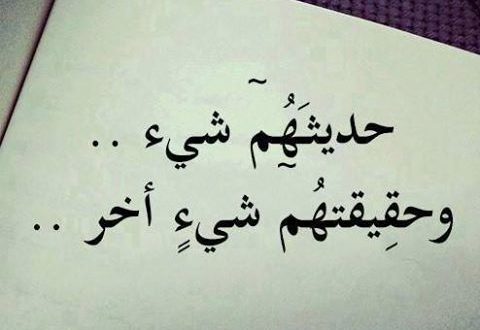 حديثهَُم~ شيء ..
وحقِيقتهُم~ شيءٍ أخر ..